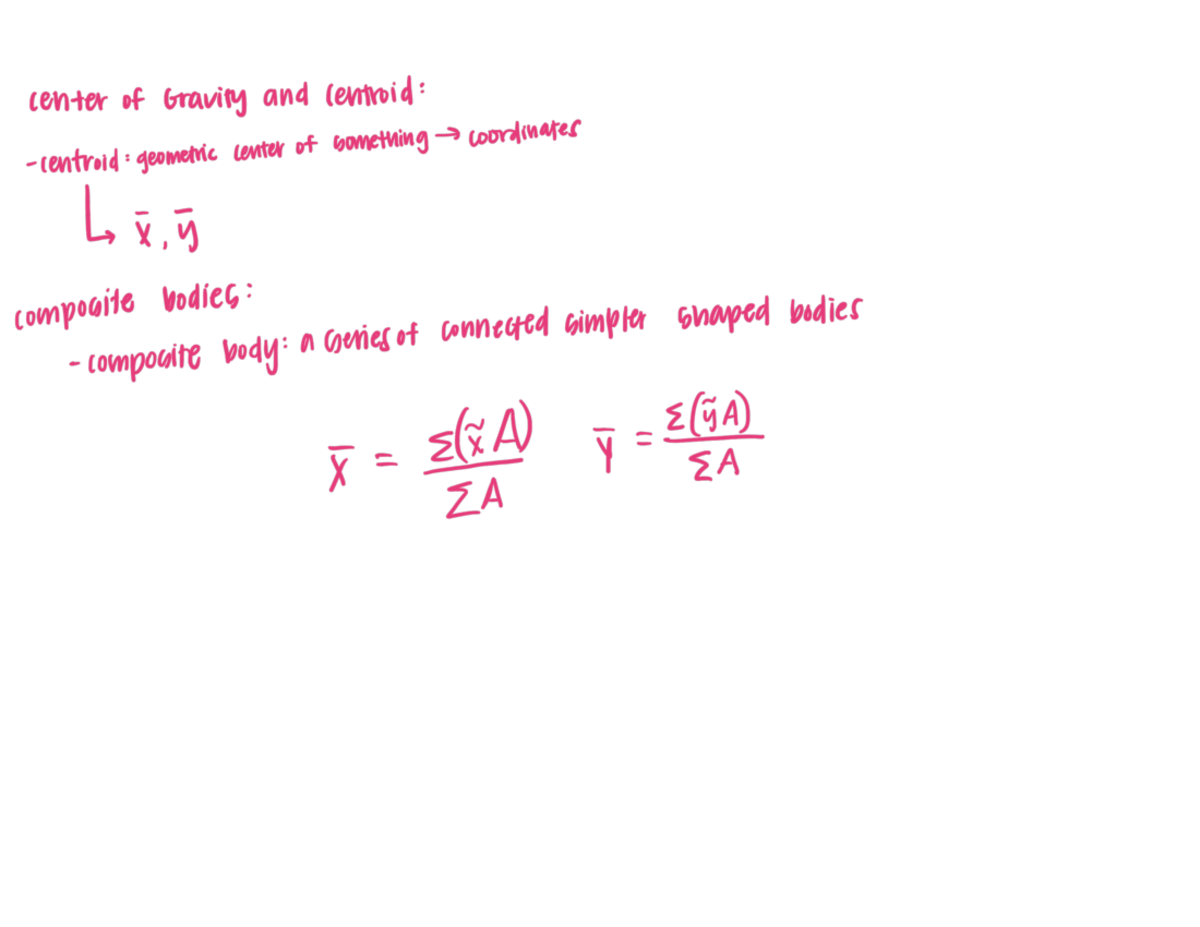 center of Gravity and Centroid:
- centroid: geometric center of something → coordinates
↳ x̄, ȳ
composite bodies:
- composite body: a series of connected simpler shaped bodies
x̄ = Σ(x̃ A) / ΣA    ȳ = Σ(ỹ A) / ΣA